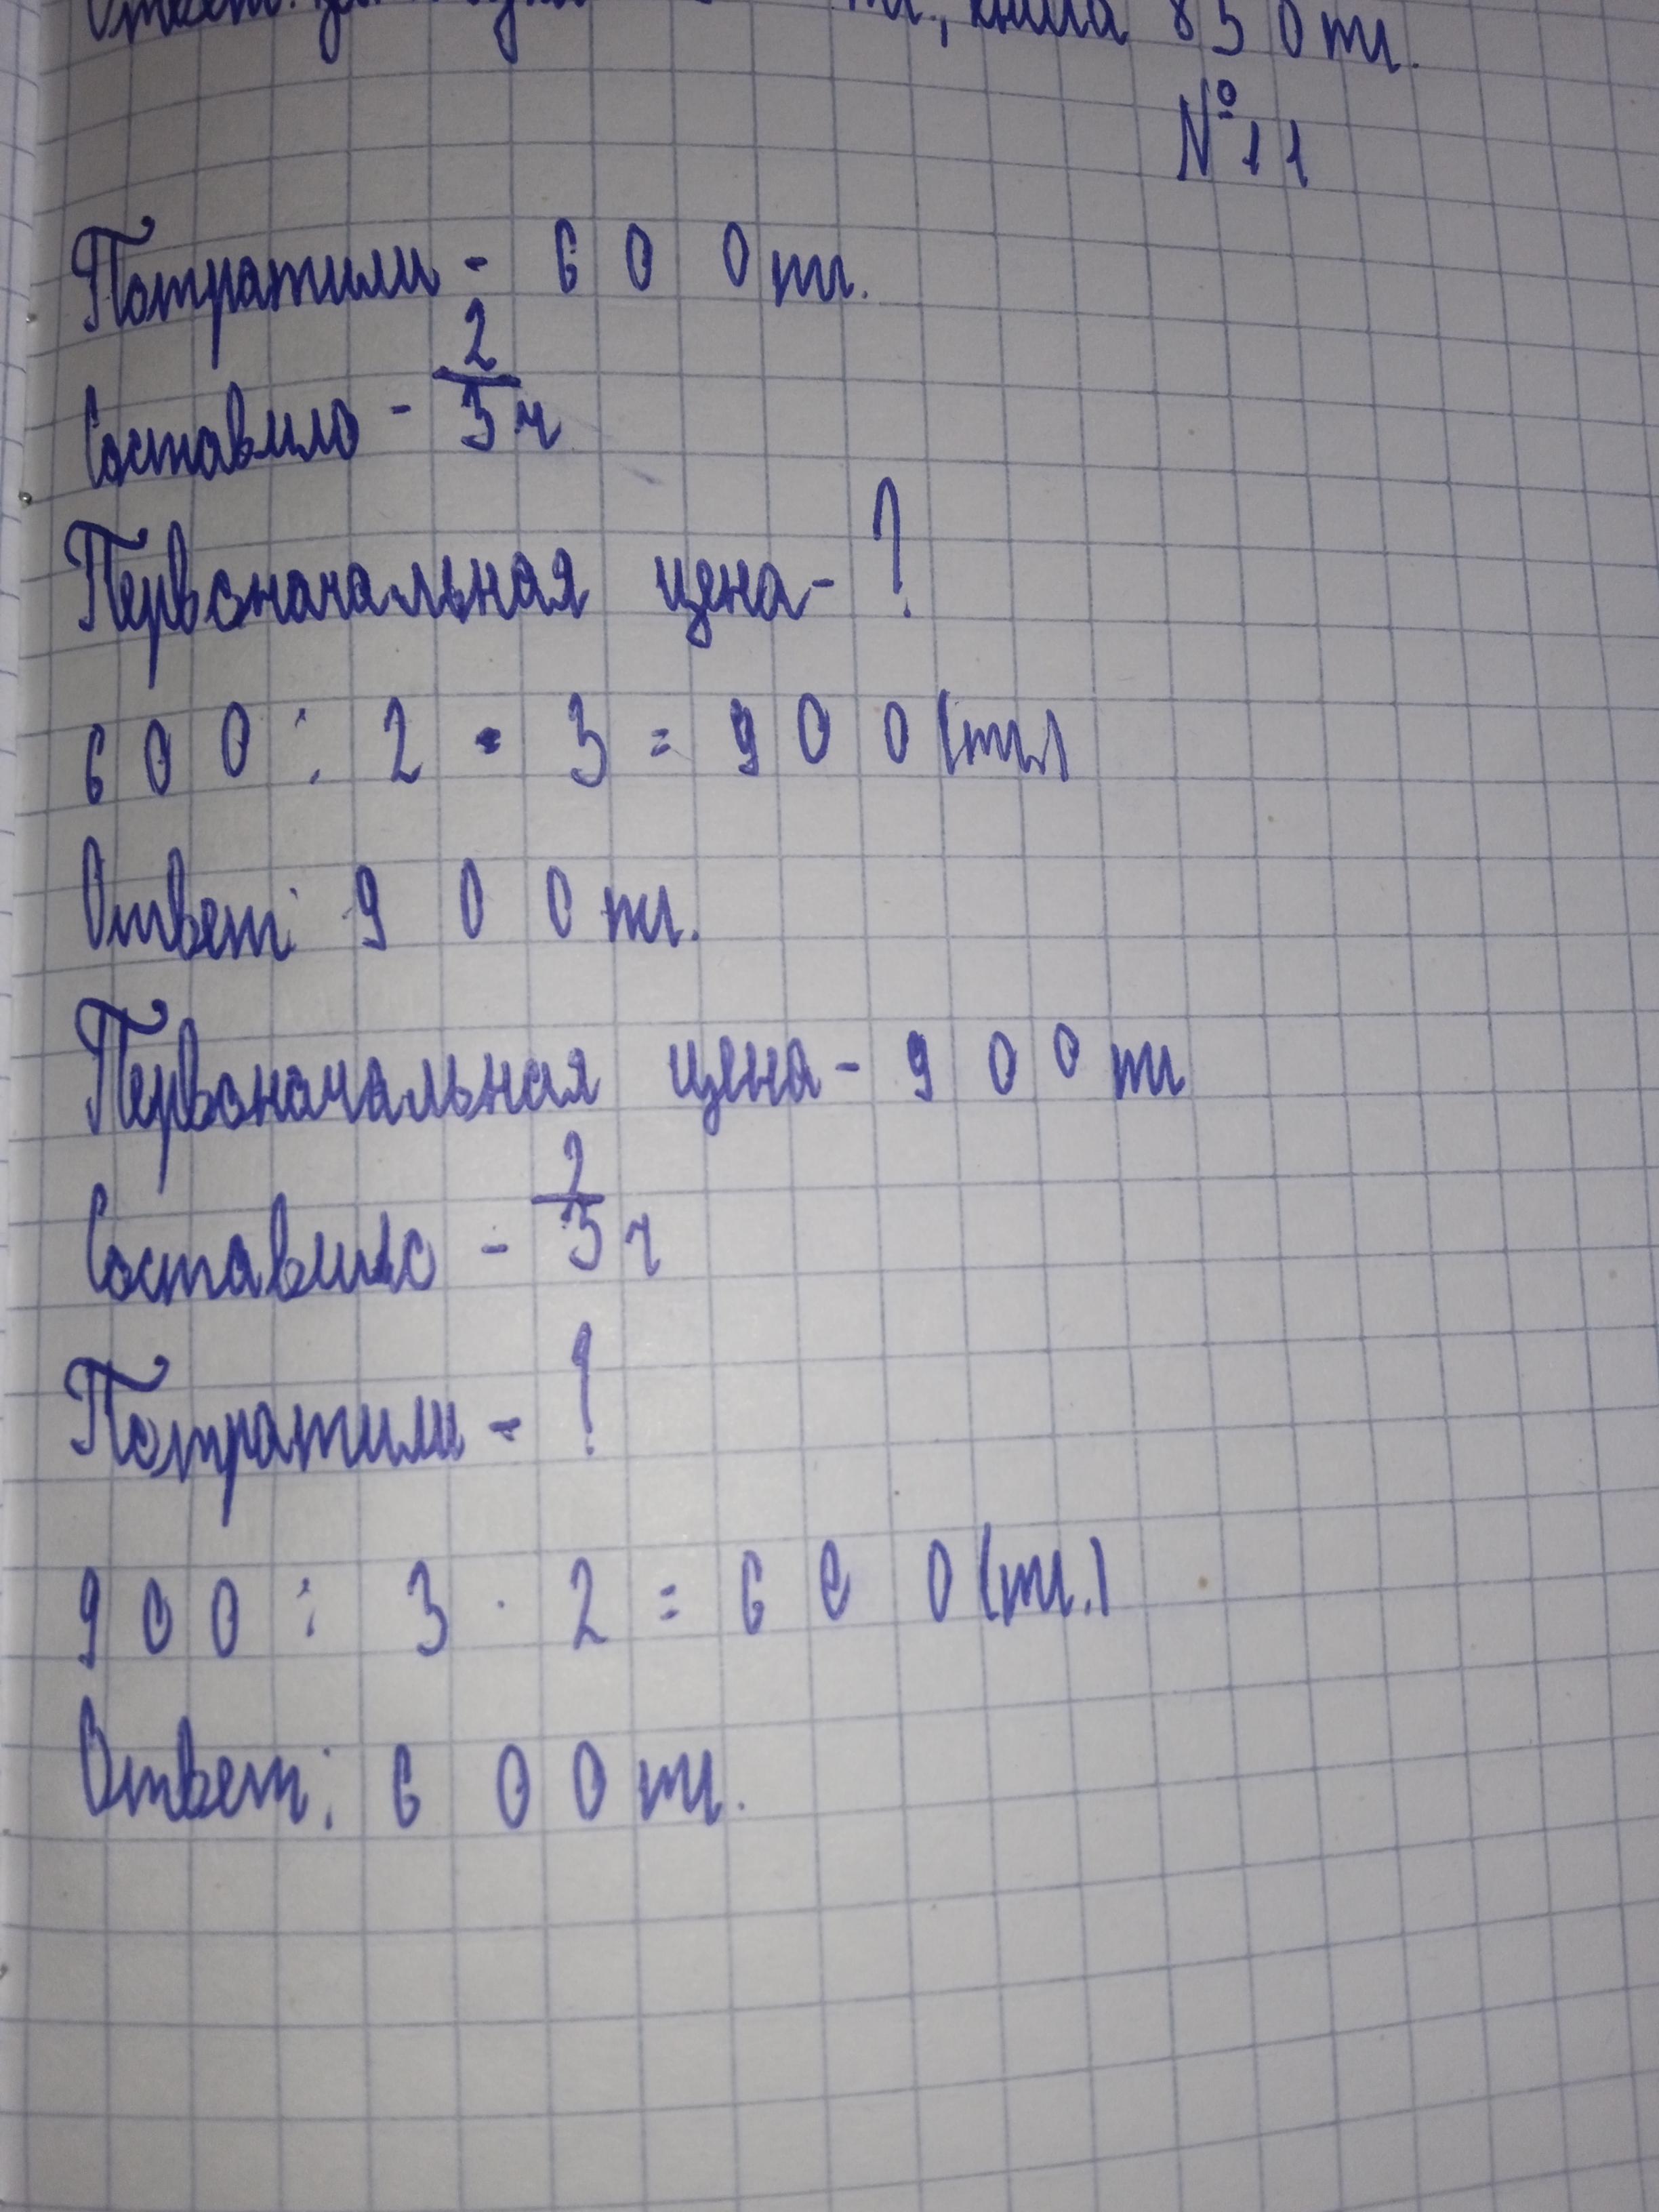 Ответ: тг., книга 850тг.
№11
Потратили - 600тг.
Составило - 2/3 ч
Первоначальная цена - ?
600 : 2 · 3 = 900 (тг.)
Ответ: 900 тг.
Первоначальная цена - 900 тг
Составило - 2/3 ч
Потратили - ?
900 : 3 · 2 = 600 (тг.)
Ответ: 600 тг.